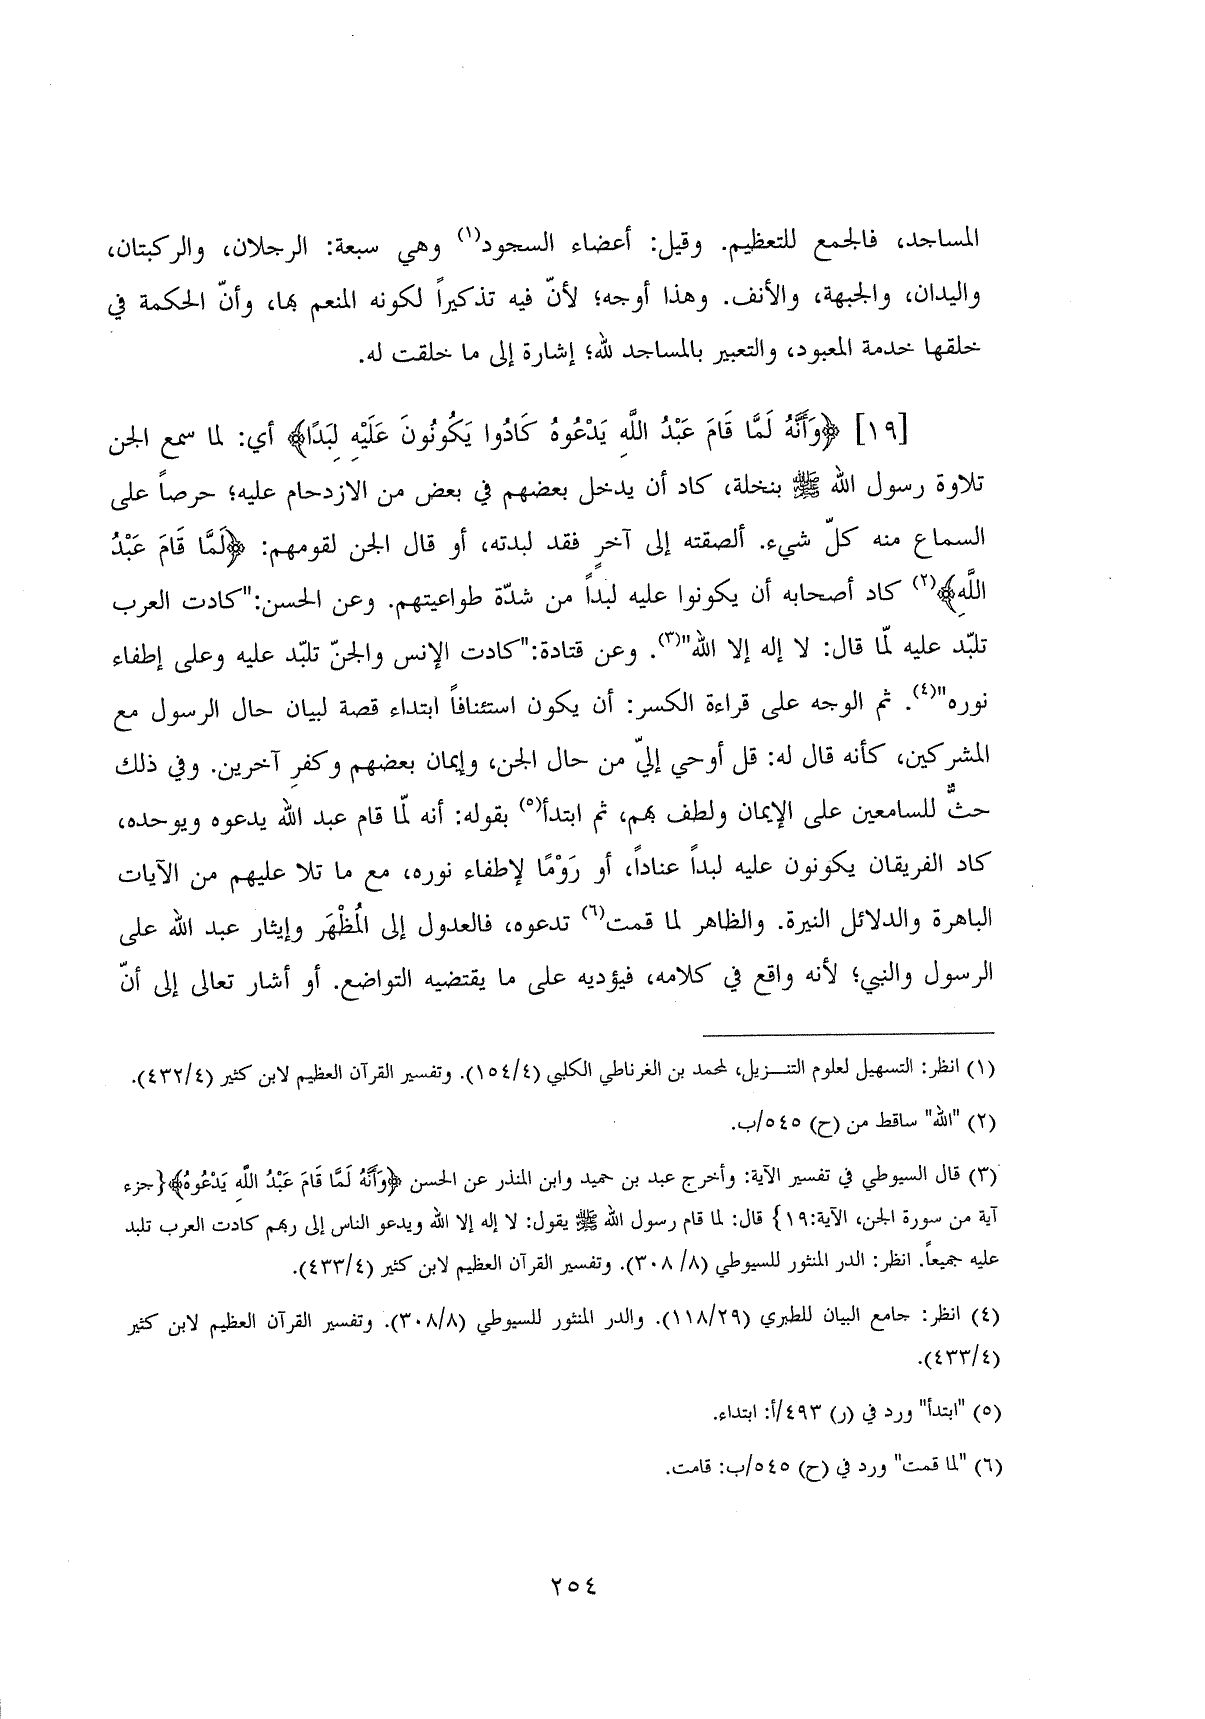 المساجد، فالجمع للتعظيم. وقيل: أعضاء السجود(١) وهي سبعة: الرجلان، والركبتان،
واليدان، والجبهة، والأنف. وهذا أوجه؛ لأنّ فيه تذكيراً لكونه المنعم بها، وأنّ الحكمة في
خلقها خدمة المعبود، والتعبير بالمساجد لله؛ إشارة إلى ما خلقت له.
[١٩] ﴿وَأَنَّهُ لَمَّا قَامَ عَبْدُ اللَّهِ يَدْعُوهُ كَادُوا يَكُونُونَ عَلَيْهِ لِبَدًا﴾ أي: لما سمع الجن
تلاوة رسول الله ﷺ بنخلة، كاد أن يدخل بعضهم في بعض من الازدحام عليه؛ حرصاً على
السماع منه كلّ شيء. ألصقته إلى آخرٍ فقد لبدته، أو قال الجن لقومهم: ﴿لَمَّا قَامَ عَبْدُ
اللَّهِ﴾(٢) كاد أصحابه أن يكونوا عليه لبداً من شدّة طواعيتهم. وعن الحسن:"كادت العرب
تلبّد عليه لمّا قال: لا إله إلا الله"(٣). وعن قتادة:"كادت الإنس والجنّ تلبّد عليه وعلى إطفاء
نوره"(٤). ثم الوجه على قراءة الكسر: أن يكون استئنافاً ابتداء قصة لبيان حال الرسول مع
المشركين، كأنه قال له: قل أوحي إليّ من حال الجن، وإيمان بعضهم وكفرِ آخرين. وفي ذلك
حثٌّ للسامعين على الإيمان ولطف بهم، ثم ابتدأ(٥) بقوله: أنه لمّا قام عبد الله يدعوه ويوحده،
كاد الفريقان يكونون عليه لبداً عناداً، أو رَوْمًا لإطفاء نوره، مع ما تلا عليهم من الآيات
الباهرة والدلائل النيرة. والظاهر لما قمت(٦) تدعوه، فالعدول إلى المُظْهَر وإيثار عبد الله على
الرسول والنبي؛ لأنه واقع في كلامه، فيؤديه على ما يقتضيه التواضع. أو أشار تعالى إلى أنّ
(١) انظر: التسهيل لعلوم التنـزيل، لمحمد بن الغرناطي الكلبي (١٥٤/٤). وتفسير القرآن العظيم لابن كثير (٤٣٢/٤).
(٢) "الله" ساقط من (ح) ٥٤٥/ب.
(٣) قال السيوطي في تفسير الآية: وأخرج عبد بن حميد وابن المنذر عن الحسن ﴿وَأَنَّهُ لَمَّا قَامَ عَبْدُ اللَّهِ يَدْعُوهُ﴾{جزء
آية من سورة الجن، الآية:١٩} قال: لما قام رسول الله ﷺ يقول: لا إله إلا الله ويدعو الناس إلى ربهم كادت العرب تلبد
عليه جميعاً. انظر: الدر المنثور للسيوطي (٨/ ٣٠٨). وتفسير القرآن العظيم لابن كثير (٤٣٣/٤).
(٤) انظر: جامع البيان للطبري (١١٨/٢٩). والدر المنثور للسيوطي (٣٠٨/٨). وتفسير القرآن العظيم لابن كثير
(٤٣٣/٤).
(٥) "ابتدأ" ورد في (ر) ٤٩٣/أ: ابتداء.
(٦) "لما قمت" ورد في (ح) ٥٤٥/ب: قامت.
٢٥٤